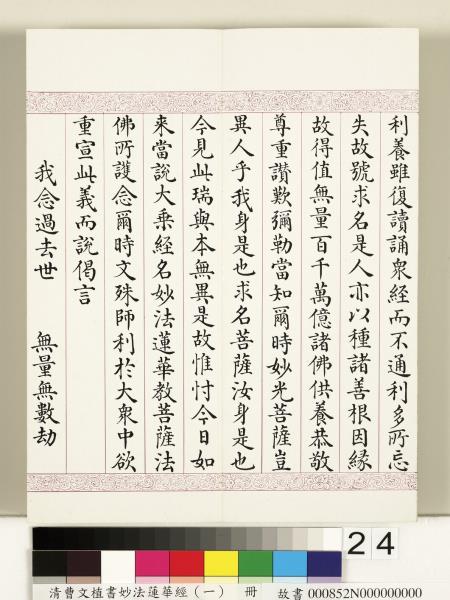 利養雖復讀誦眾經而不通利多所忘
失故號求名是人亦以種諸善根因緣
故得值無量百千萬億諸佛供養恭敬
尊重讚歎彌勒當知爾時妙光菩薩豈
異人乎我身是也求名菩薩汝身是也
今見此瑞與本無異是故惟忖今日如
來當說大乘經名妙法蓮華教菩薩法
佛所護念爾時文殊師利於大眾中欲
重宣此義而說偈言
我念過去世 無量無數劫
24
清曹文植書妙法蓮華經(一) 冊 故書 000852N000000000